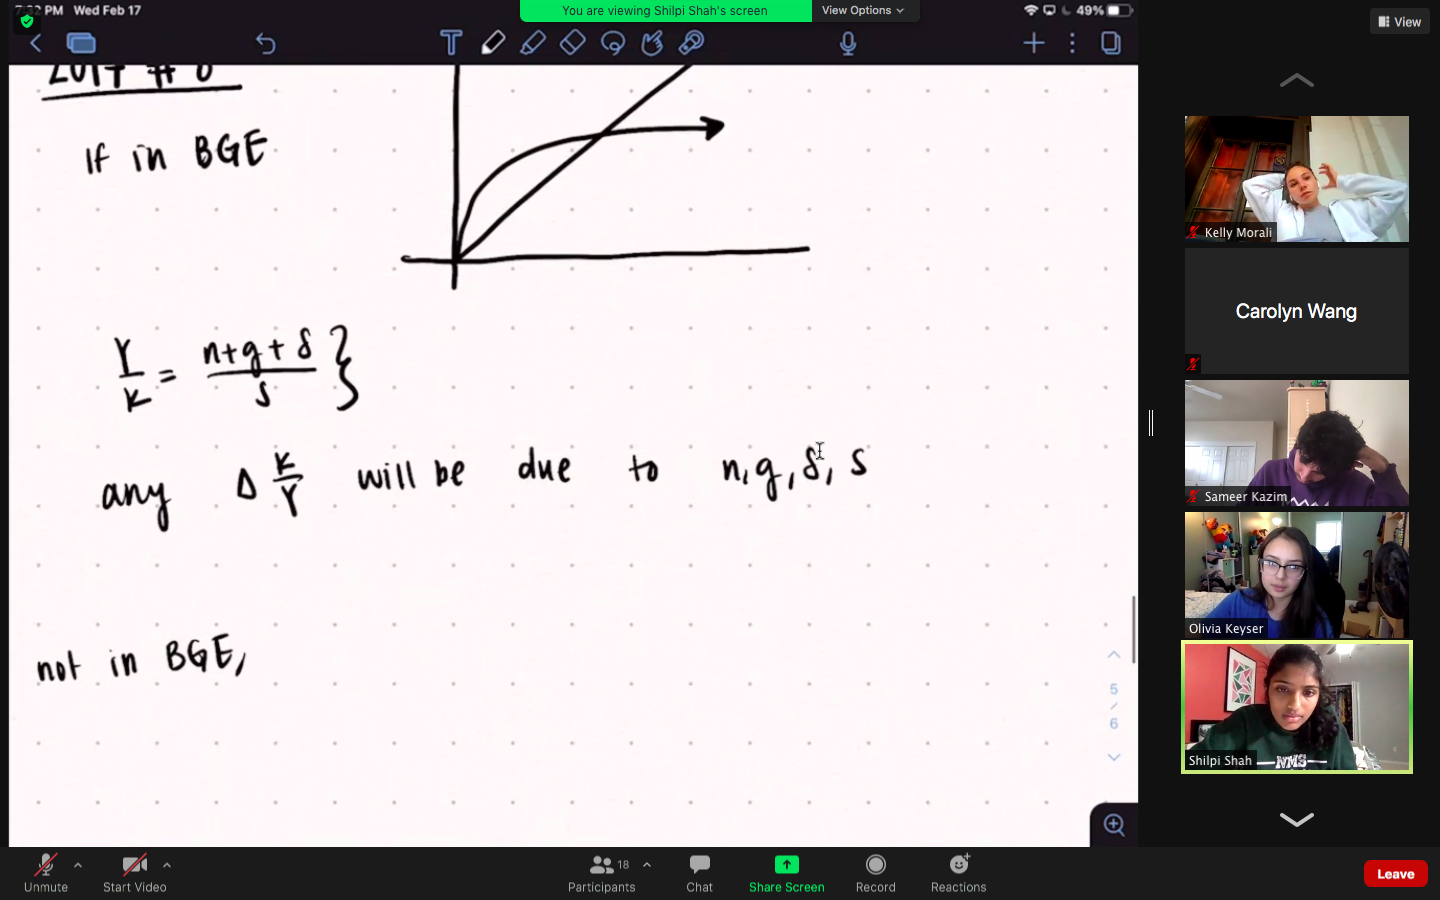 PM Wed Feb 17
You are viewing Shilpi Shah's screen
View Options
49%
View
If in BGE
Y/K = n+g+δ/s }
any Δ K/Y will be due to n, g, δ, s
not in BGE,
5
/
6
Kelly Morali
Carolyn Wang
Sameer Kazim
Olivia Keyser
NMS
Shilpi Shah
Unmute
Start Video
18
Participants
Chat
Share Screen
Record
Reactions
Leave